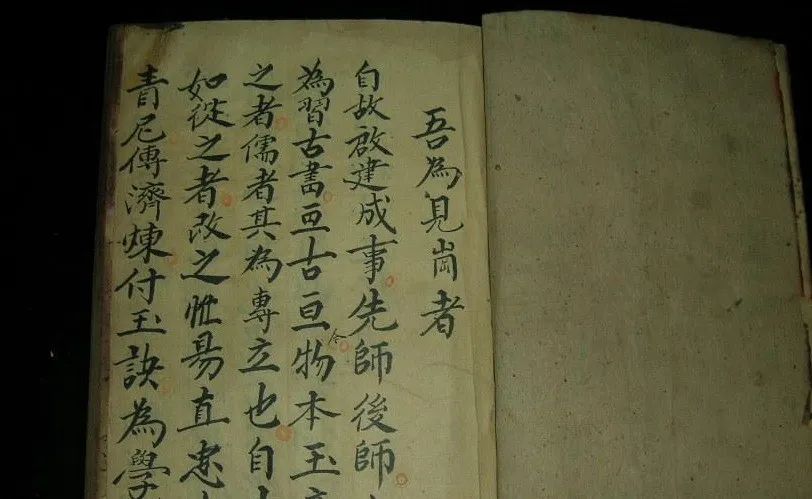 吾為見崗者
自故啟建成事先師後師
為習古書亘古亘今物本玉
之者儒者其為專立也自
如從之者改之性易直忠
青尼傳濟煉付玉訣為學